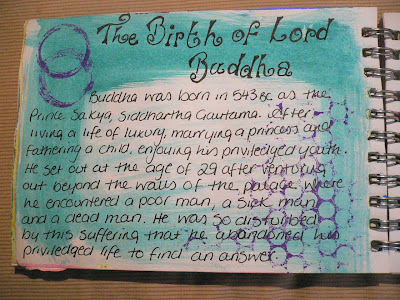 The Birth of Lord
Buddha
Buddha was born in 543 BC as the
Prince Sakya, Siddhartha Gautama. After
living a life of luxury, marrying a princess and
fathering a child, enjoying his priviledged youth.
He set out at the age of 29 after venturing
out beyond the walls of the palage where
he encountered a poor man, a sick man
and a dead man. He was so disturbed
by this suffering that he abandoned his
priviledged life to find an answer.